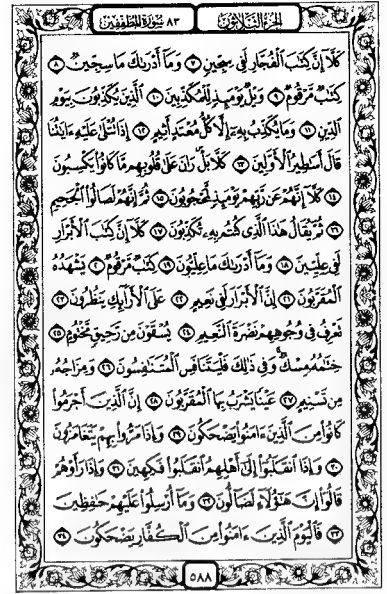 الجزء الثلاثون
٨٣ سورة المطففين
كَلَّا إِنَّ كِتَٰبَ ٱلْفُجَّارِ لَفِى سِجِّينٍ ٧ وَمَآ أَدْرَىٰكَ مَا سِجِّينٌ ٨
كِتَٰبٌ مَّرْقُومٌ ٩ وَيْلٌ يَوْمَئِذٍ لِّلْمُكَذِّبِينَ ١٠ ٱلَّذِينَ يُكَذِّبُونَ بِيَوْمِ
ٱلدِّينِ ١١ وَمَا يُكَذِّبُ بِهِۦٓ إِلَّا كُلُّ مُعْتَدٍ أَثِيمٍ ١٢ إِذَا تُتْلَىٰ عَلَيْهِ ءَايَٰتُنَا
قَالَ أَسَٰطِيرُ ٱلْأَوَّلِينَ ١٣ كَلَّا بَلْ رَانَ عَلَىٰ قُلُوبِهِم مَّا كَانُوا۟ يَكْسِبُونَ
١٤ كَلَّآ إِنَّهُمْ عَن رَّبِّهِمْ يَوْمَئِذٍ لَّمَحْجُوبُونَ ١٥ ثُمَّ إِنَّهُمْ لَصَالُوا۟ ٱلْجَحِيمِ
١٦ ثُمَّ يُقَالُ هَٰذَا ٱلَّذِى كُنتُم بِهِۦ تُكَذِّبُونَ ١٧ كَلَّآ إِنَّ كِتَٰبَ ٱلْأَبْرَارِ
لَفِى عِلِّيِّينَ ١٨ وَمَآ أَدْرَىٰكَ مَا عِلِّيُّونَ ١٩ كِتَٰبٌ مَّرْقُومٌ ٢٠ يَشْهَدُهُ
ٱلْمُقَرَّبُونَ ٢١ إِنَّ ٱلْأَبْرَارَ لَفِى نَعِيمٍ ٢٢ عَلَى ٱلْأَرَآئِكِ يَنظُرُونَ ٢٣
تَعْرِفُ فِى وُجُوهِهِمْ نَضْرَةَ ٱلنَّعِيمِ ٢٤ يُسْقَوْنَ مِن رَّحِيقٍ مَّخْتُومٍ ٢٥
خِتَٰمُهُۥ مِسْكٌ وَفِى ذَٰلِكَ فَلْيَتَنَافَسِ ٱلْمُتَنَٰفِسُونَ ٢٦ وَمِزَاجُهُۥ
مِن تَسْنِيمٍ ٢٧ عَيْنًا يَشْرَبُ بِهَا ٱلْمُقَرَّبُونَ ٢٨ إِنَّ ٱلَّذِينَ أَجْرَمُوا۟
كَانُوا۟ مِنَ ٱلَّذِينَ ءَامَنُوا۟ يَضْحَكُونَ ٢٩ وَإِذَا مَرُّوا۟ بِهِمْ يَتَغَامَزُونَ
٣٠ وَإِذَا ٱنقَلَبُوٓا۟ إِلَىٰٓ أَهْلِهِمُ ٱنقَلَبُوا۟ فَكِهِينَ ٣١ وَإِذَا رَأَوْهُمْ
قَالُوٓا۟ إِنَّ هَٰٓؤُلَآءِ لَضَآلُّونَ ٣٢ وَمَآ أُرْسِلُوا۟ عَلَيْهِمْ حَٰفِظِينَ
٣٣ فَٱلْيَوْمَ ٱلَّذِينَ ءَامَنُوا۟ مِنَ ٱلْكُفَّارِ يَضْحَكُونَ ٣٤
٥٨٨